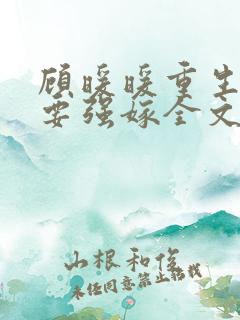 顾暖暖重生
要强嫁全文
山根和俊
未经同意禁止转载